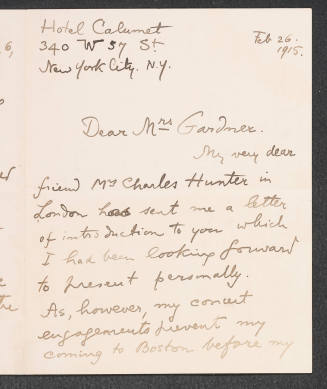 Hotel Calumet
340 W 57 St
New York City. N.Y.
Feb 26.
1915.
Dear Mrs Gardner.
My very dear
friend Mrs Charles Hunter in
London has sent me a letter
of introduction to you which
I had been looking forward
to present personally.
As, however, my concert
engagements prevent my
coming to Boston before my
6,
the